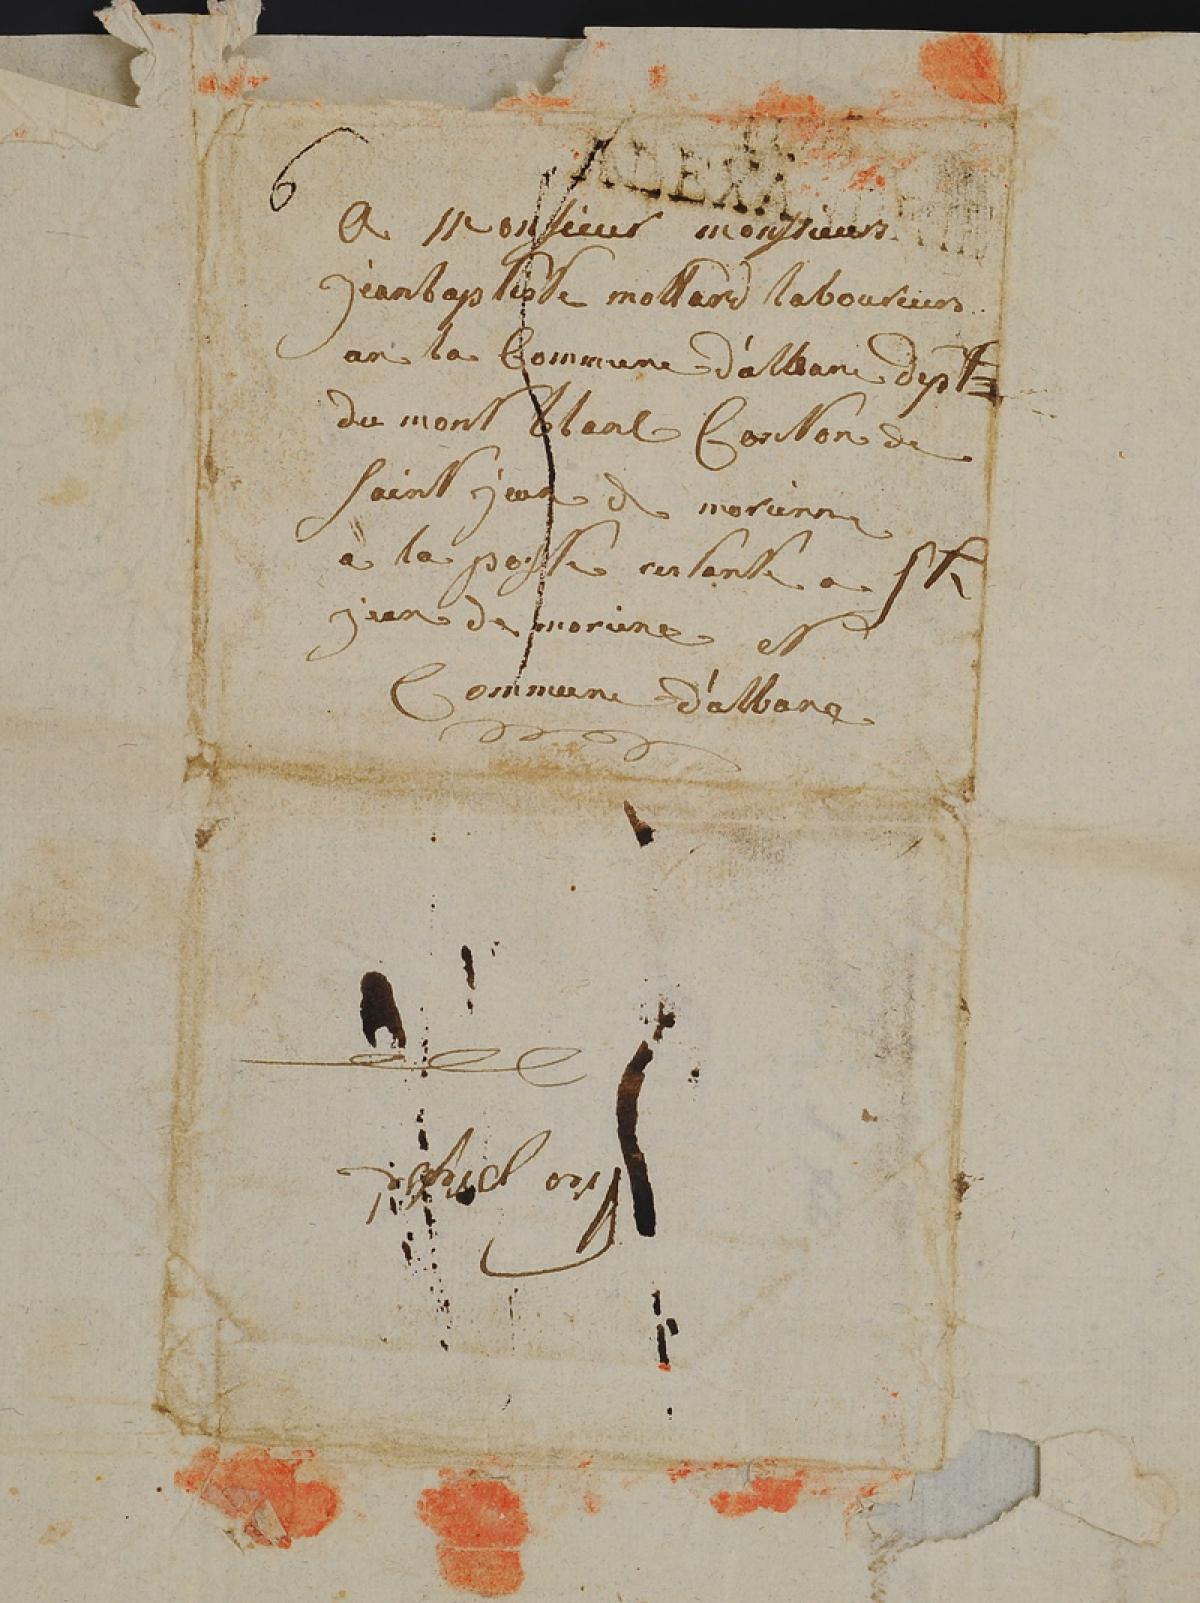 6
ALEXA
A Monsieur monsieurs
jeanbaptiste mollard labourieurs
an la Commune d'albane dept
du mont blanc Canton de
saint jean de morienne
a la poste restante a st
jean de moriene et
Commune d'albane